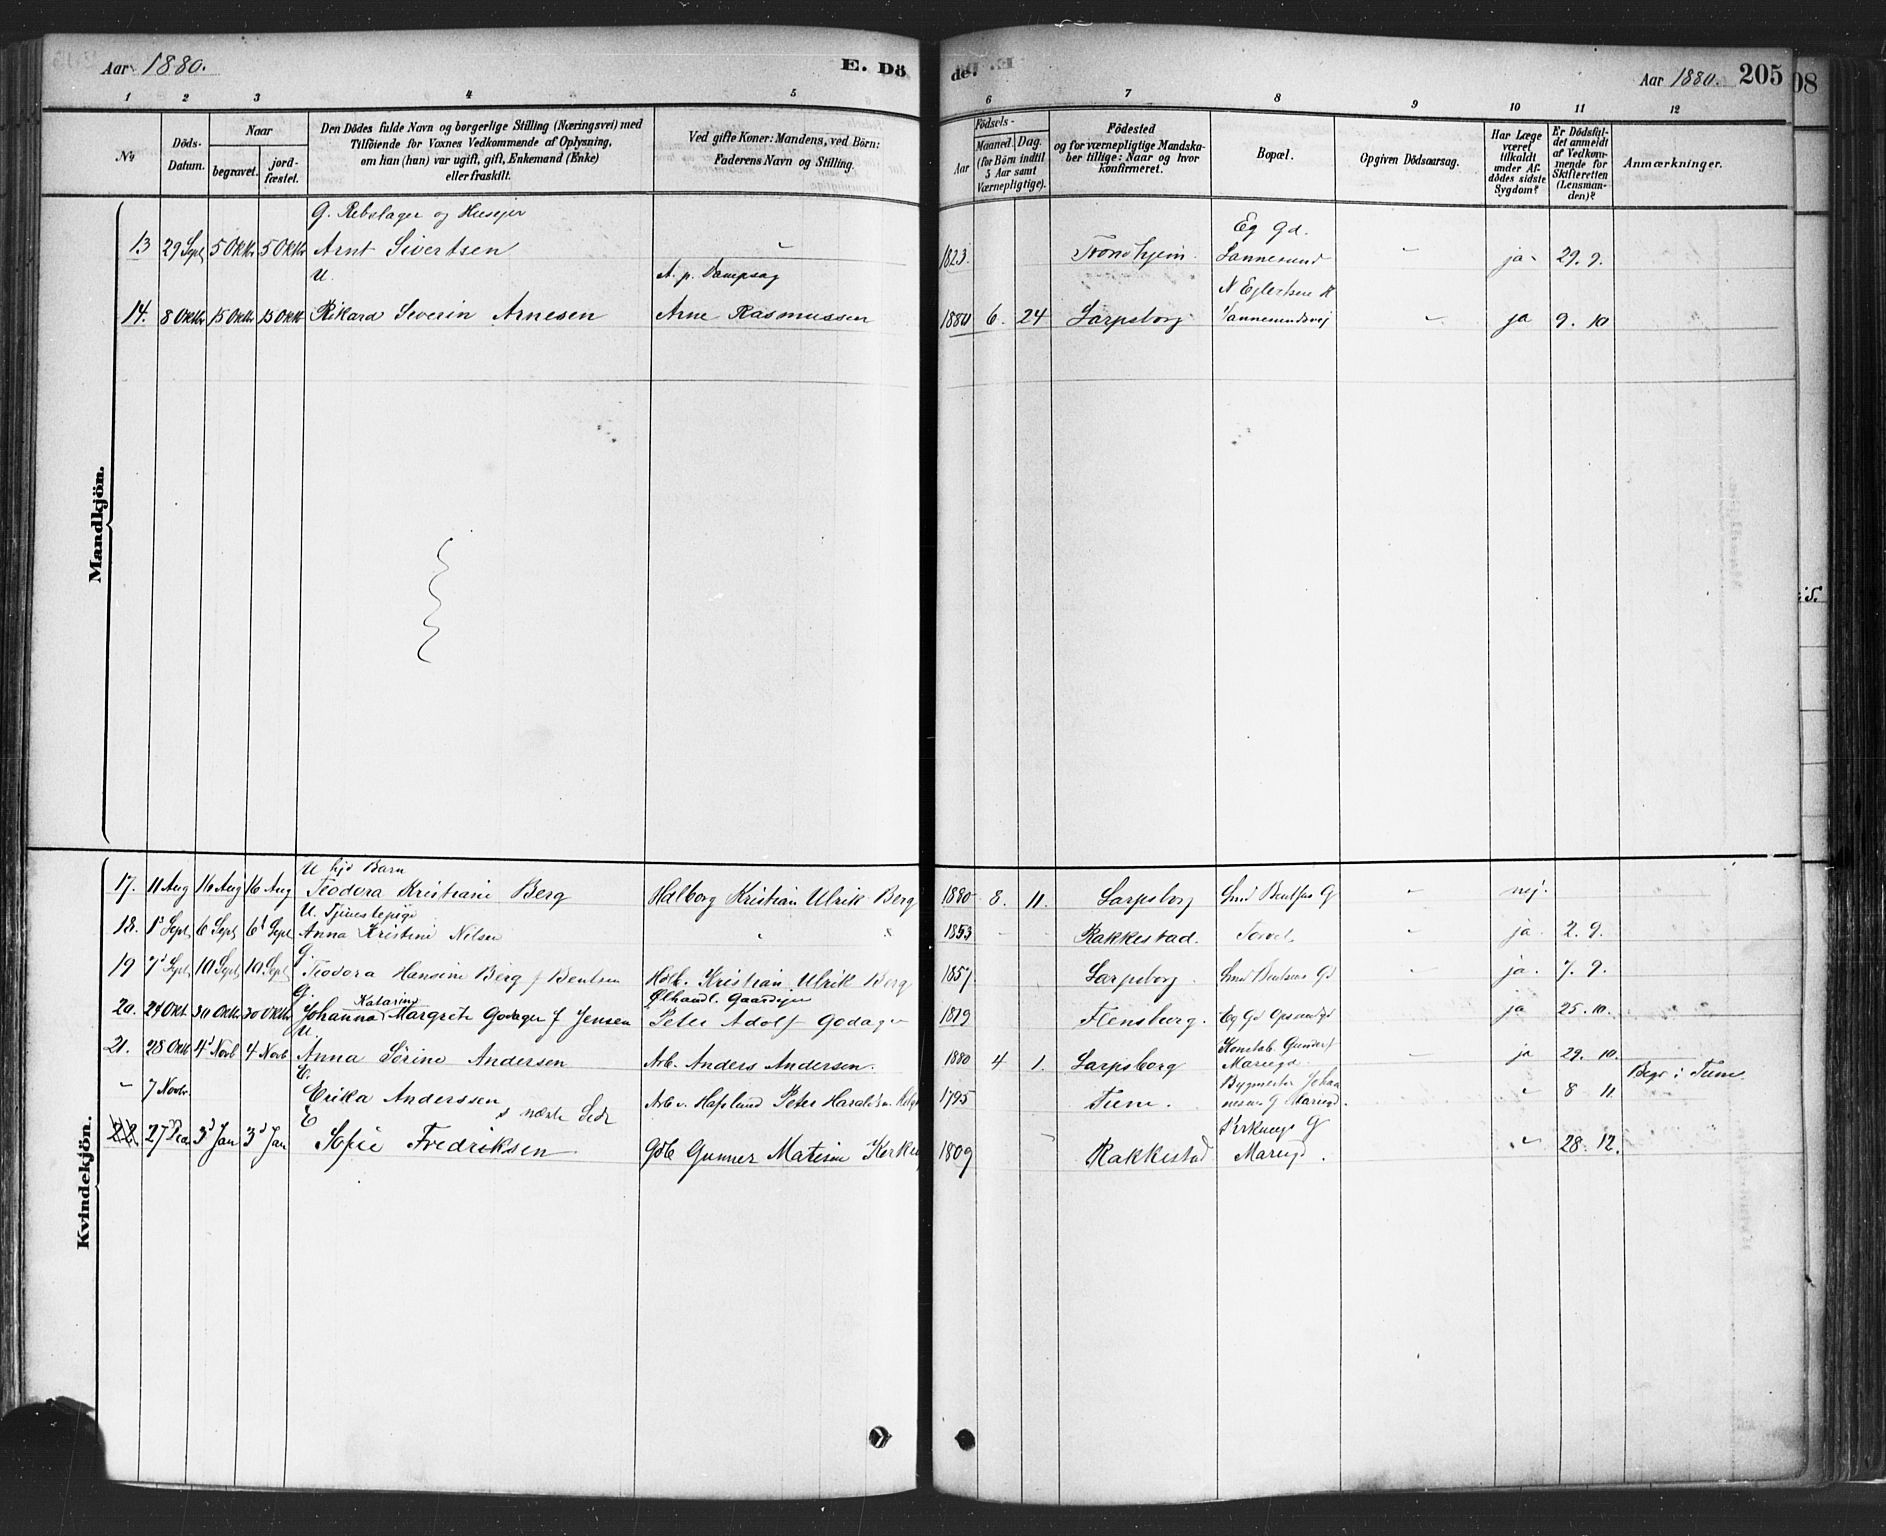 Aar 1880. E. Dö
de. Aar 1880. 205
1 2 3 4 5 6 7 8 9 10 11 12
No
Döds-Datum.
Naar
begravet.
jord-fæstet.
Den Dödes fulde Navn og borgerlige Stilling (Næringsvei) med
Tilföiende for Voxnes Vedkommende af Oplysning,
om han (hun) var ugift, gift, Enkemand (Enke)
eller fraskilt.
Ved gifte Koner: Mandens, ved Börn:
Faderens Navn og Stilling.
Födsels-
Aar
Maaned. Dag.
(for Börn indtil
5 Aar samt
Værnepligtige).
Födested
og for værnepligtige Mandska-
ber tillige: Naar og hvor
konfirmeret.
Bopæl.
Opgiven Dödsaarsag.
Har Læge
været
tilkaldt
under Af-
dödes sidste
Sygdom?
Er Dödsfal-
det anmeldt
af Vedkom-
mende for
Skifteretten
(Lensman-
den)?
Anmærkninger.
Mandkjön.
G. Rebslager og Huseier Eg Gd.
13 29 Sept 5 Oktb 5 Oktb Arnt Sivertsen " 1823. Trondhjem. Sannesund " ja 29. 9.
U. A. p. Dampsag N Eilertsens H
14. 8 Oktbr 15 Oktbr 15 Oktb Rikard Severin Arnesen Arne Rasmussen 1880 6. 24 Sarpsborg Sannesundsvej " ja 9. 10
Kvindekjön.
U Barn
17. 11 Aug 16 Aug 16 Aug Teodora Kristiane Berg Halborg Kristian Ulrik Berg 1880 8. 11. Sarpsborg Smd Bentsens G " nej.
U. Tjenestepige
18. 1s Sept 6 Sept 6t Sept Anna Kristine Nilsen " " 1853 - - Rakkestad. Torvet " ja. 2. 9.
G.
19 7d Sept 10 Sept 10 Sept Teodora Hansine Berg f Bentsen Hdb. Kristian Ulrik Berg 1857. Sarpsborg Smd Bentsens Gd " ja. 7. 9.
G. Katarina Ølhandl. Gaardeier
20. 24 Okt. 30 Oktbr 30 Oktbr Johanna Margrete Godager f Jensen Peter Adolf Godager 1819 Flensburg. Eg Gd " ja 25. 10.
U. Konstab. Gunders
21. 28 Oktb 4d Novb 4 Novb Anna Sørine Andersen Arb. Anders Andersen. 1880 4 1. Sarpsborg Mariegd " ja 29. 10.
E. Bygmester Johan
" 7 Novbr. Erika Anderssen Arb. v. Hafslund Peter 1795 Tune. nesens G Mariegd. " 8 11. Begr i Tune.
E s næste Side Kirkengs G
22. 27d Dec 3d Jan 3d Jan Sofie Fredriksen Gdb Gunner Matisen 1809 Rakkestad Mariegd. " 28. 12.